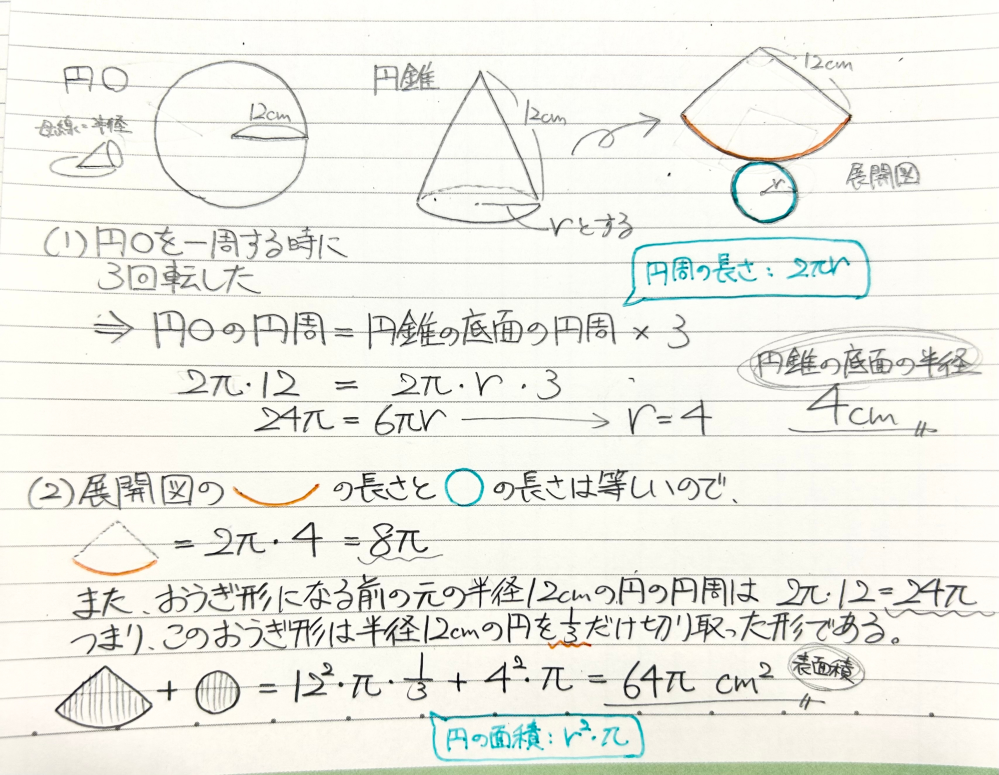 円O
12cm
母線=半径
円錐
12cm
rとする
12cm
r
展開図
(1)円Oを一周する時に
3回転した
円周の長さ: 2πr
⇒ 円Oの円周 = 円錐の底面の円周 × 3
2π・12 = 2π・r・3
24π = 6πr → r = 4
円錐の底面の半径
4cm
(2)展開図の の長さと の長さは等しいので、
= 2π・4 = 8π
また、おうぎ形になる前の元の半径12cmの円の円周は 2π・12=24π
つまり、このおうぎ形は半径12cmの円を1/3だけ切り取った形である。
+ = 12²・π・1/3 + 4²・π = 64π cm² 表面積
円の面積: r²・π